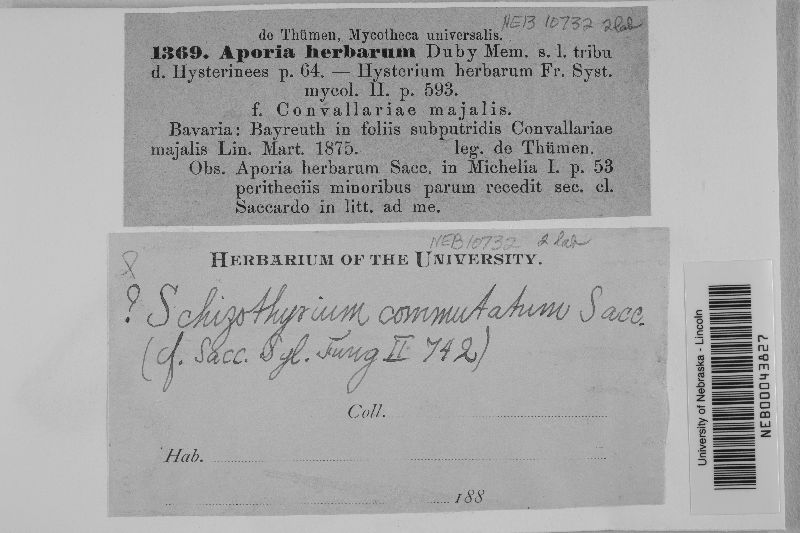 NEB 10732 2 lab
de Thümen, Mycotheca universalis.
1369. Aporia herbarum Duby Mem. s. l. tribu
d. Hysterinees p. 64. — Hysterium herbarum Fr. Syst.
mycol. II. p. 593.
f. Convallariae majalis.
Bavaria: Bayreuth in foliis subputridis Convallariae
majalis Lin. Mart. 1875. leg. de Thümen.
Obs. Aporia herbarum Sacc. in Michelia I. p. 53
peritheciis minoribus parum recedit sec. cl.
Saccardo in litt. ad me.
NEB 10732 2 lab
HERBARIUM OF THE UNIVERSITY.
? Schizothyrium commutatum Sacc.
(cf. Sacc. Syl. Fung II 742)
Coll.
Hab.
188
University of Nebraska - Lincoln
NEB00043827